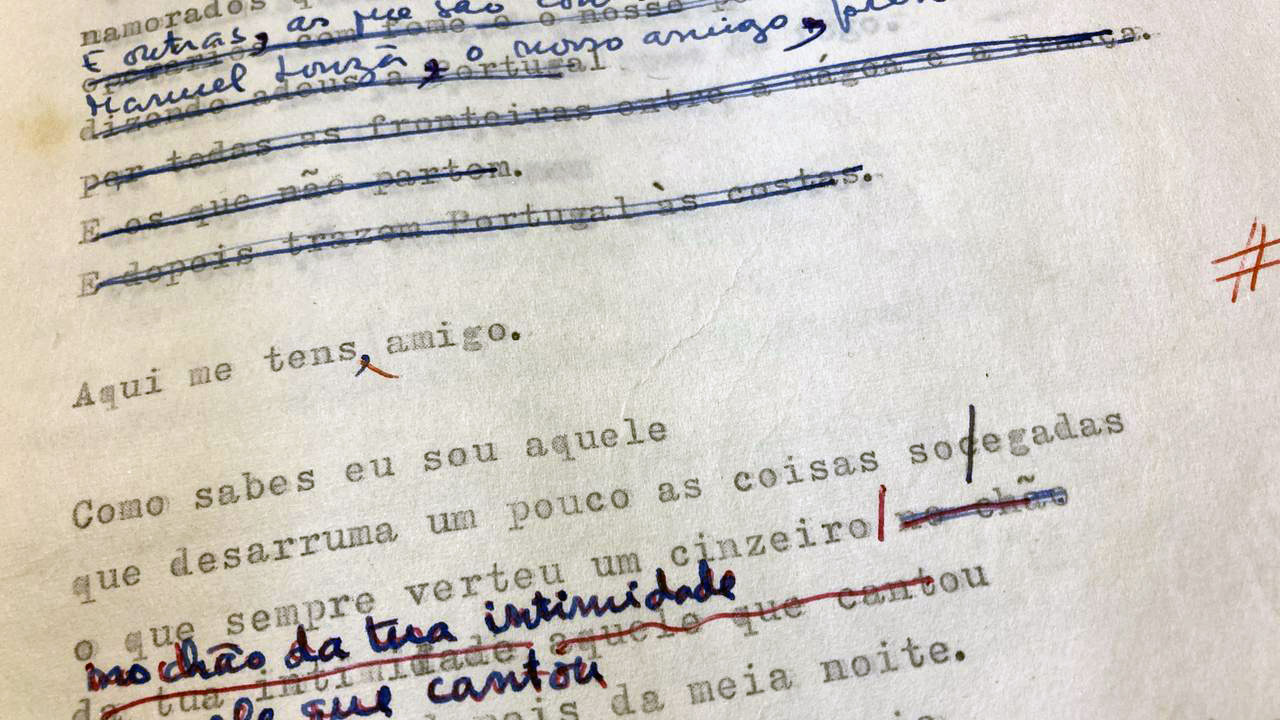 namorados
E outras, as que são
operários com fome e o nosso
Manuel Louzã, o nosso amigo,
dizendo adeus a Portugal
por todas as fronteiras entre a mágoa e a França.
E os que não partem.
E depois trazem Portugal às costas.
#
Aqui me tens, amigo.
Como sabes eu sou aquele
que desarruma um pouco as coisas socegadas
o que sempre verteu um cinzeiro no chão
no chão da tua intimidade
da tua intimidade aquele que cantou
que cantou
da meia noite.